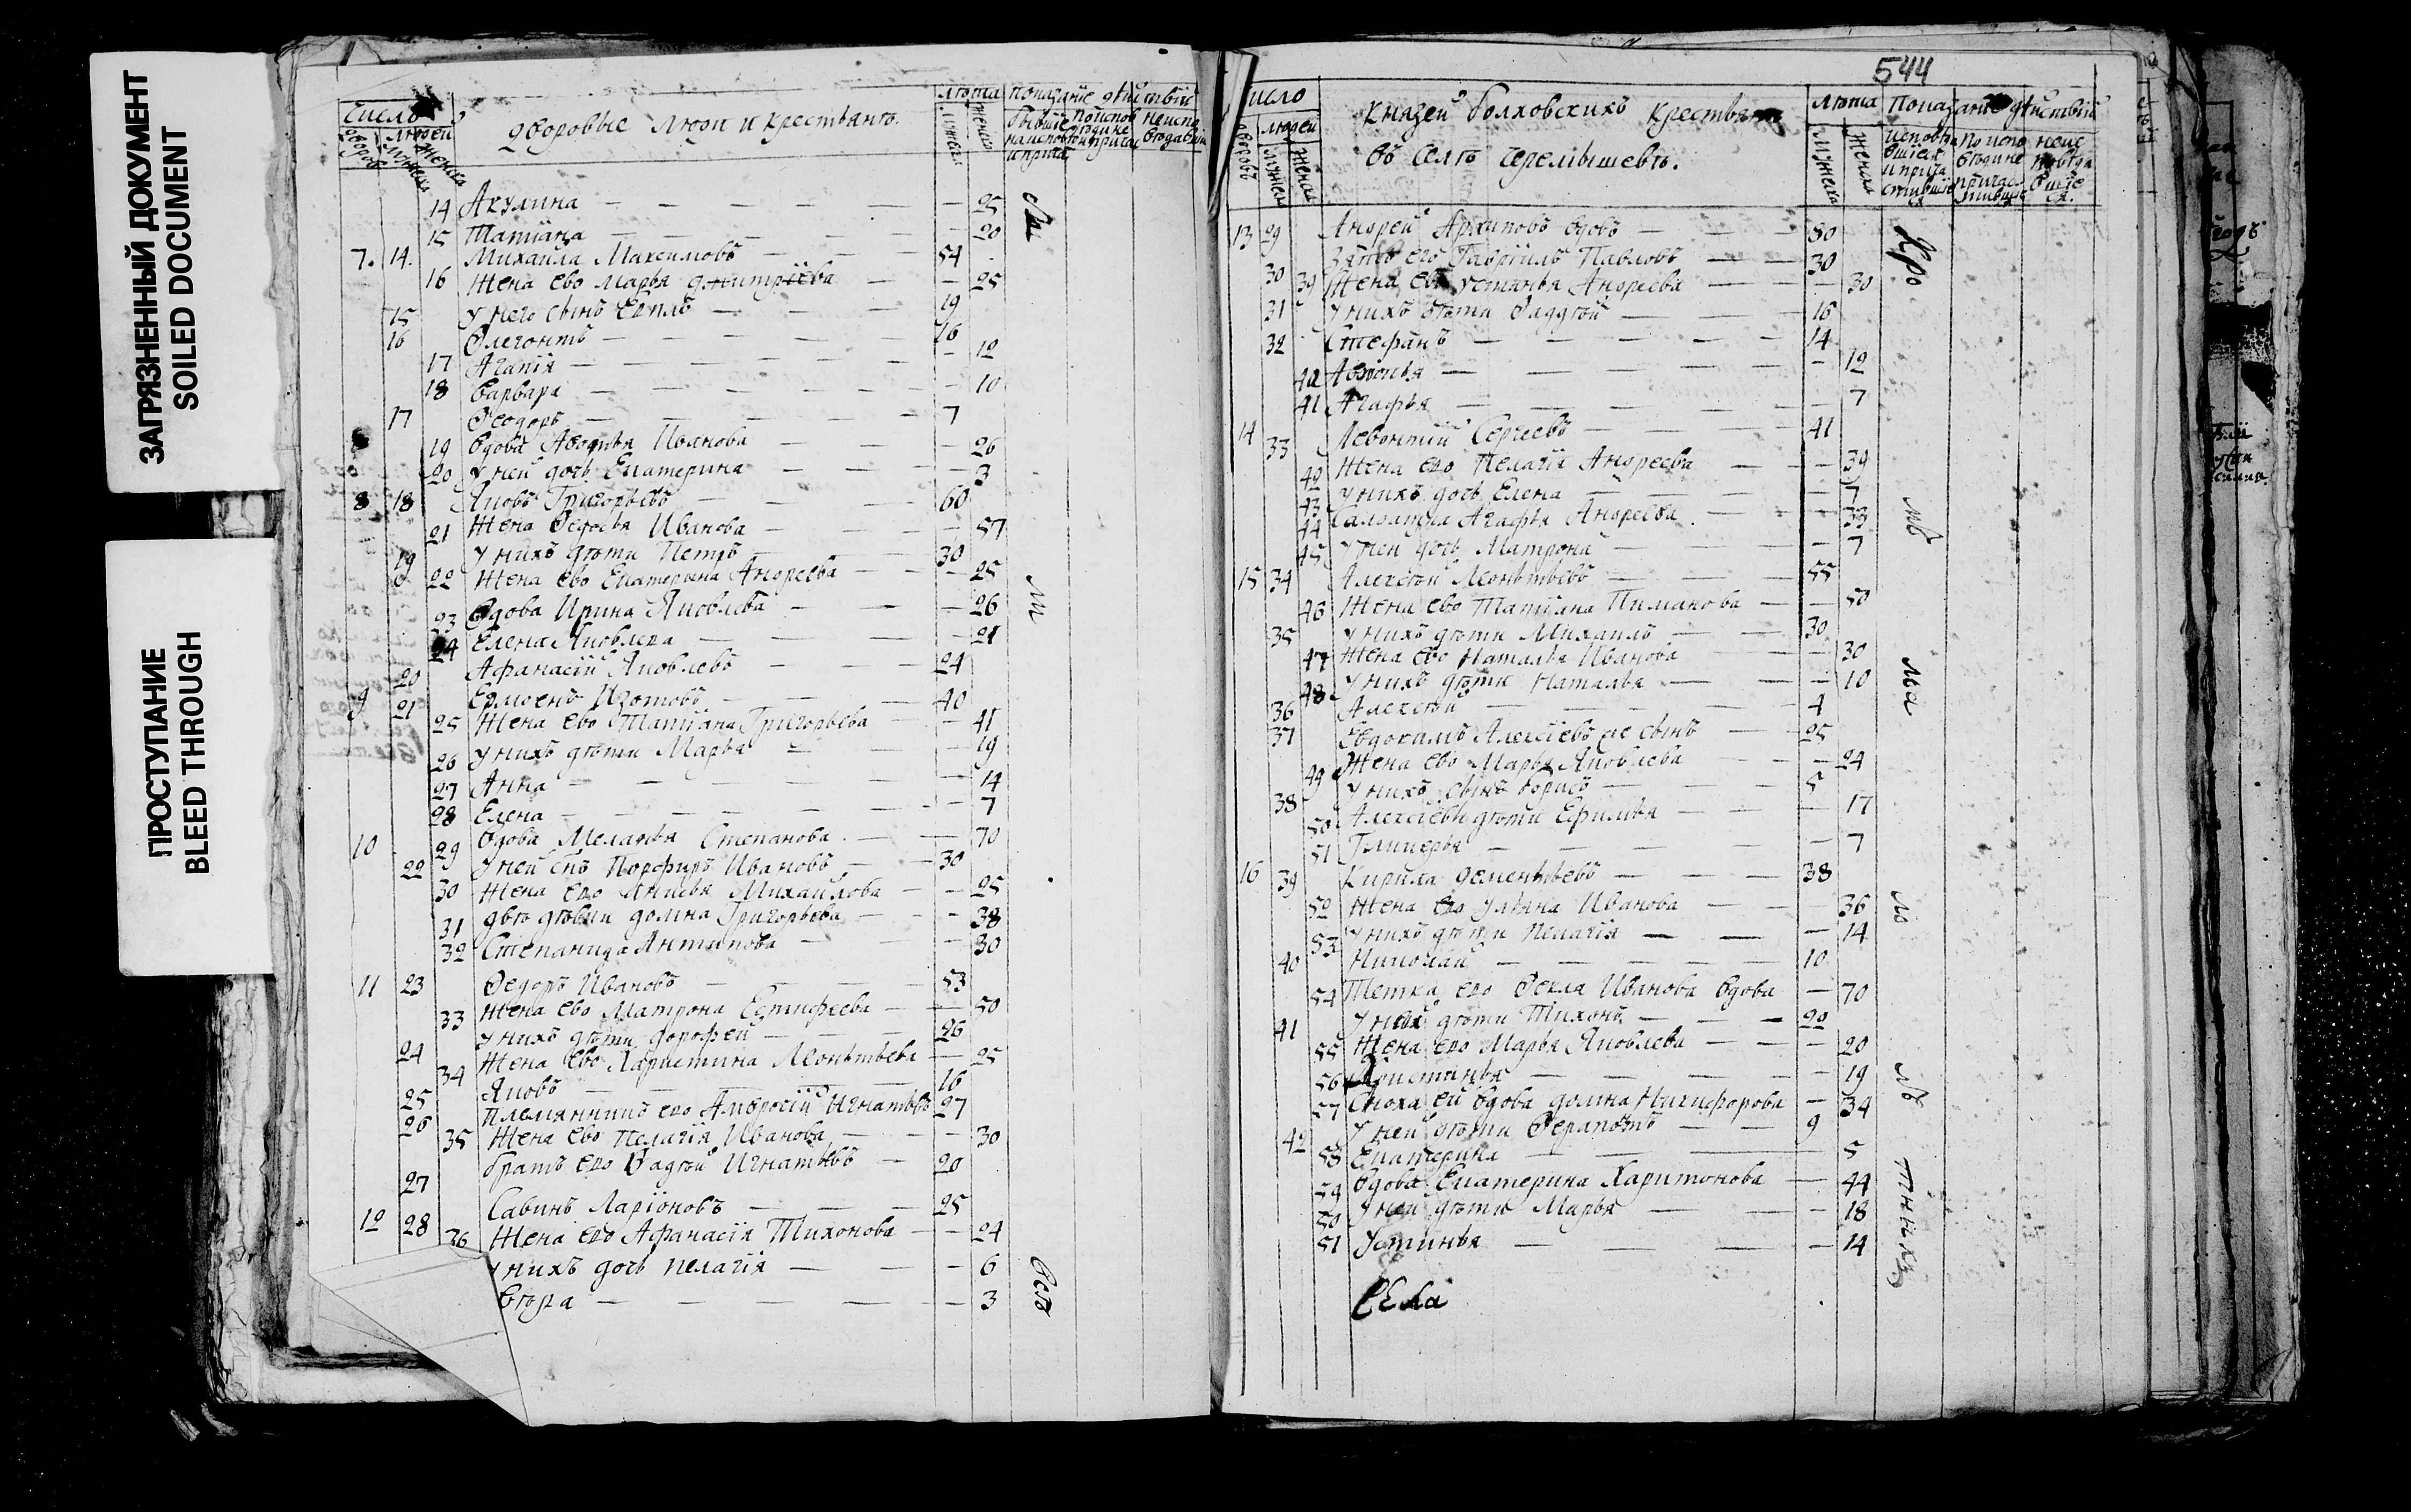 ЗАГРЯЗНЕННЫЙ ДОКУМЕНТ
SOILED DOCUMENT
ПРОСТУПАНИЕ
BLEED THROUGH
число
людей
дворовые люди и крестьянѣ.
лѣта показанïе дѣйствïй
14 Акулина — 25
15 Татïана — 20
7. 14. Михаила Максимовъ 54
16 Жена ево Марья дмитрïева — 25
15 у него сынъ 19
16 Флегонтъ — 16
17 Агапïя — 12
18 варвара — 10
17 Ѳеодоръ — 7
19 вдова Авдотья Иванова — 26
20 у ней дочь Екатерина — 3
8 18 Яковъ Григорьевъ — 60
21 Жена Ѳедосья Иванова — 57
19 у нихъ дѣти Петръ — 30
22 Жена ево Екатерина Андреева — 25
23 вдова Ирина Яковлева — 26
24 Елена Яковлева — 21
20 Афанасïй Яковлевъ — 24
9 21 Изотовъ — 40
25 Жена ево Татïана Григорьева — 41
26 у нихъ дѣти Марья — 19
27 Анна — 14
28 Елена — 7
10 29 вдова Меланья Степанова — 70
22 у ней снъ Порфиръ Ивановъ — 30
30 Жена ево Анисья Михайлова — 25
31 двѣ дѣвки домна Григорьева — 38
32 Степанида Антипова — 30
11 23 Ѳедоръ Ивановъ — 53
33 Жена ево Матрона Естифеева — 50
24 у нихъ дѣти дорофей — 26
34 Жена ево Харистина Леонтьева — 25
25 Яковъ — 16
26 племянникъ ево Амвросïй Игнатьевъ 27
35 Жена ево Пелагïя Иванова — 30
27 братъ ево Фадѣй Игнатьевъ — 20
12 28 Савинъ Ларïоновъ — 25
36 Жена ево Афанасïя Тихонова — 24
у нихъ дочь пелагïя — 6
вѣра — 3
Всѣ
544
число
людей
князей болховскихъ крестьянѣ
въ селѣ
лѣта Показанïе дѣйствïй
13 29 Андрей Архиповъ вдовъ — 80
30 Зять его Гаврïилъ Павловъ — 30
39 Жена ево устинья Андреева — 30
31 у нихъ дѣти Фаддѣй — 16
32 Стефанъ — 14
40 Авдотья — 12
41 Агафья — 7
14 33 Левонтïй Сергеевъ — 41
42 Жена ево Пелагïя Андреева — 39
43 у нихъ дочь Елена — 7
44 Салдатка Агафья Андреева — 33
45 у ней дочь Матрона — 7
15 34 Алексѣй Леонтьевъ — 55
46 Жена ево Татïана Пиманова — 50
35 у нихъ дѣти Михаилъ — 30
47 Жена ево Наталья Иванова — 30
48 у нихъ дѣти Наталья — 10
36 Алексѣй — 4
37 Евдокимъ Алексïевъ сынъ — 25
49 Жена ево Марья Яковлева — 24
38 у нихъ сынъ борисъ — 5
50 Алексïевы дѣти Ефимья — 17
51 Гликерья — 7
16 39 Кирила дементьевъ — 38
52 Жена ево Ульяна Иванова — 36
53 у нихъ дѣти пелагïя — 14
40 Николай — 10
54 Тетка ево Ѳекла Иванова вдова — 70
41 дѣти Тихонъ — 20
55 Жена ево Марья Яковлева — 20
56 Христинья — 19
57 Сноха ей вдова домна Никифорова — 34
42 у ней дѣти Ферапонтъ — 9
58 Екатерина — 5
59 вдова Екатерина Харитонова — 44
50 у ней дѣти Марья — 18
51 Устинья — 14
села